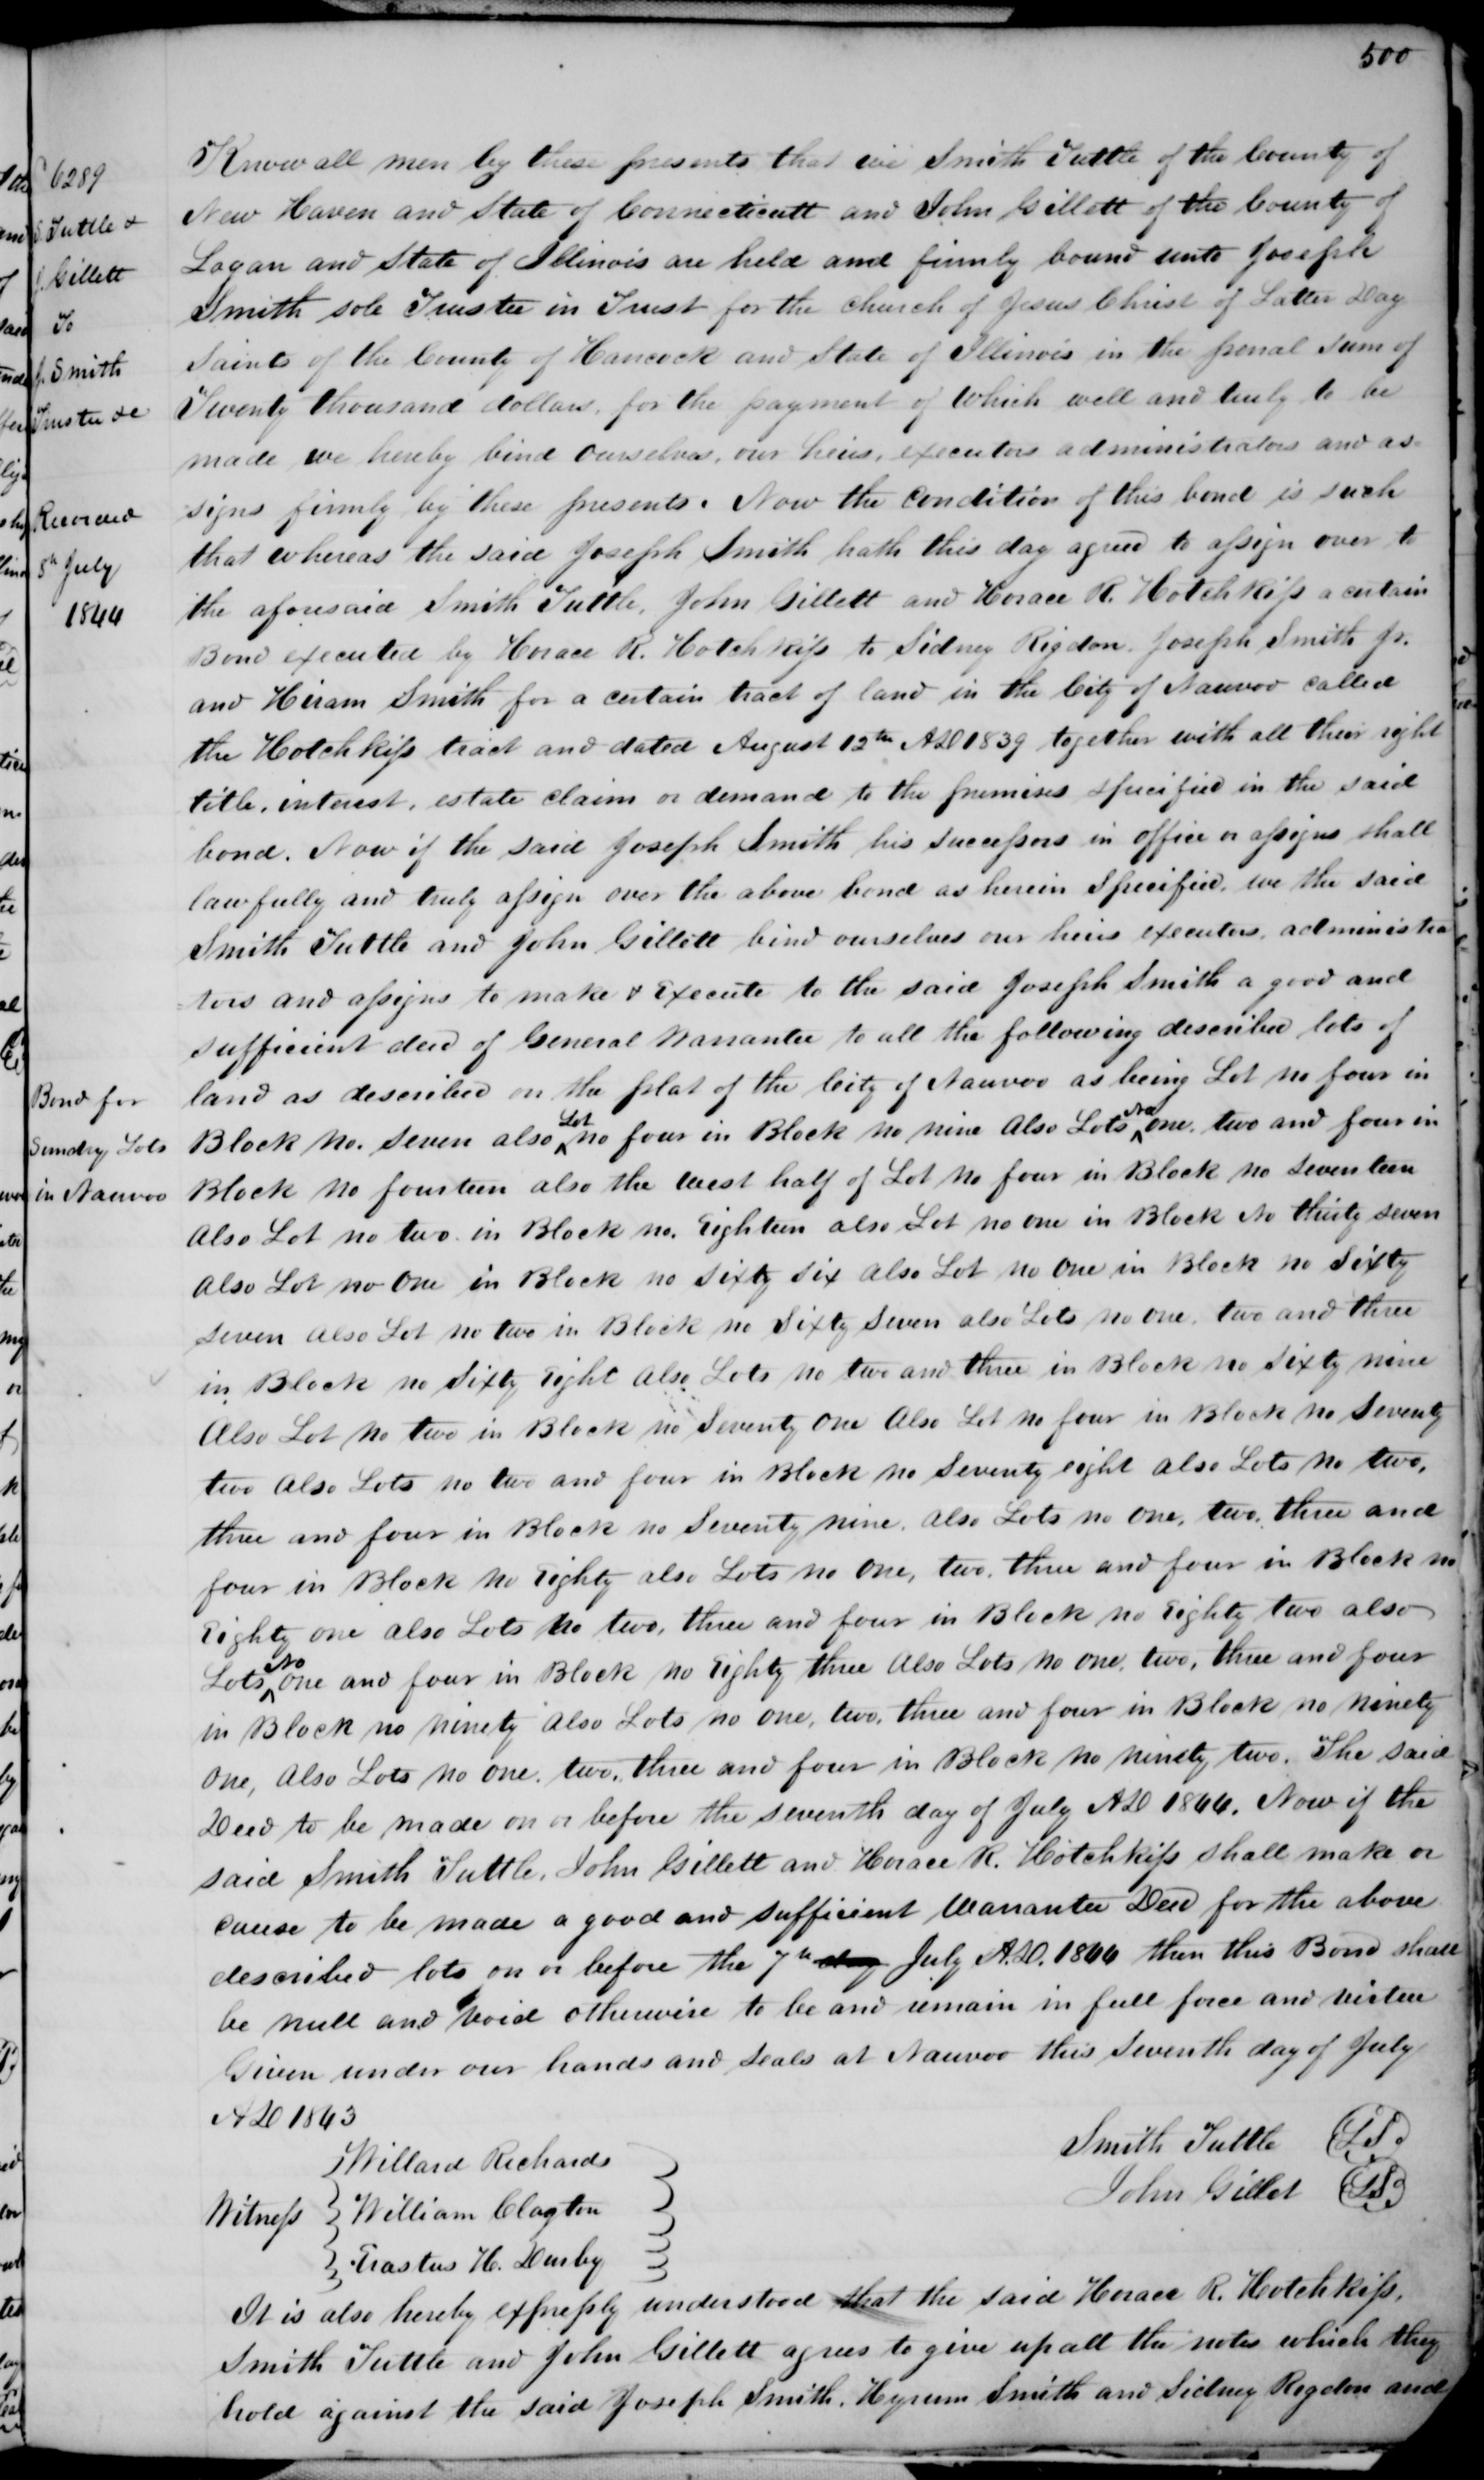 500
6289
S Tuttle &
J. Gillett
To
J. Smith
Trustee &c
Recorded
8th July
1844
Bond for
Sundry Lots
in Nauvoo
Know all men by these presents that we Smith Tuttle of the County of
New Haven and State of Connecticutt and John Gillett of the County of
Logan and State of Illinois are held and firmly bound unto Joseph
Smith sole Trustee in Trust for the church of Jesus Christ of Latter Day
Saints of the County of Hancock and State of Illinois in the penal sum of
Twenty thousand dollars, for the payment of which well and truly to be
made we hereby bind ourselves, our heirs, executors administrators and as-
signs firmly by these presents. Now the condition of this bond is such
that whereas the said Joseph Smith hath this day agreed to assign over to
the aforesaid Smith Tuttle, John Gillett and Horace R. Hotchkiss a certain
Bond executed by Horace R. Hotchkiss to Sidney Rigdon, Joseph Smith Jr.
and Hiram Smith for a certain tract of land in the City of Nauvoo called
the Hotchkiss tract and dated August 12th AD 1839 together with all their right
title, interest, estate claim or demand to the premises specified in the said
bond. Now if the said Joseph Smith his successors in office or assigns shall
lawfully and truly assign over the above bond as herein Specified, we the said
Smith Tuttle and John Gillett bind ourselves our heirs executors, administra
-tors and assigns to make & Execute to the said Joseph Smith a good and
sufficient deed of General Warrantee to all the following described lots of
land as described on the plat of the City of Nauvoo as being Lot no four in
Block No. Seven also ^Lot no four in Block no nine Also Lots ^No one, two and four in
Block No fourteen also the West half of Lot No four in Block no Seventeen
Also Lot no two in Block no. Eighteen also Lot no one in Block No thirty seven
Also Lot no One in Block no Sixty Six Also Lot no One in Block no Sixty
seven Also Lot no two in Block no Sixty Seven also Lots no one, two and three
in Block no Sixty Eight Also Lots no two and three in Block no Sixty nine
Also Lot No two in Block no Seventy One Also Lot no four in Block no Seventy
two Also Lots no two and four in Block no Seventy eight also Lots No two,
three and four in Block no Seventy nine, Also Lots no One, two, three and
four in Block No Eighty also Lots no One, two, three and four in Block no
Eighty one also Lots No two, three and four in Block no Eighty two also
Lots ^No One and four in Block no Eighty three Also Lots No one, two, three and four
in Block no ninety Also Lots no one, two, three and four in Block no Ninety
One, Also Lots no one, two, three and four in Block no ninety two. The said
Deed to be made on or before the seventh day of July AD 1844. Now if the
said Smith Tuttle, John Gillett and Horace R. Hotchkiss shall make or
cause to be made a good and sufficient Warrantee Deed for the above
described lots on or before the 7th day July A.D. 1844 then this Bond shall
be null and void otherwise to be and remain in full force and virtue
Given under our hands and seals at Nauvoo this Seventh day of July
AD 1843
Smith Tuttle (L.S.)
John Gillet (LS)
Willard Richards
Witness William Clayton
Erastus H. Derby
It is also hereby expressly understood that the said Horace R. Hotchkiss,
Smith Tuttle and John Gillett agrees to give up all the notes which they
hold against the said Joseph Smith, Hyrum Smith and Sidney Rigdon and